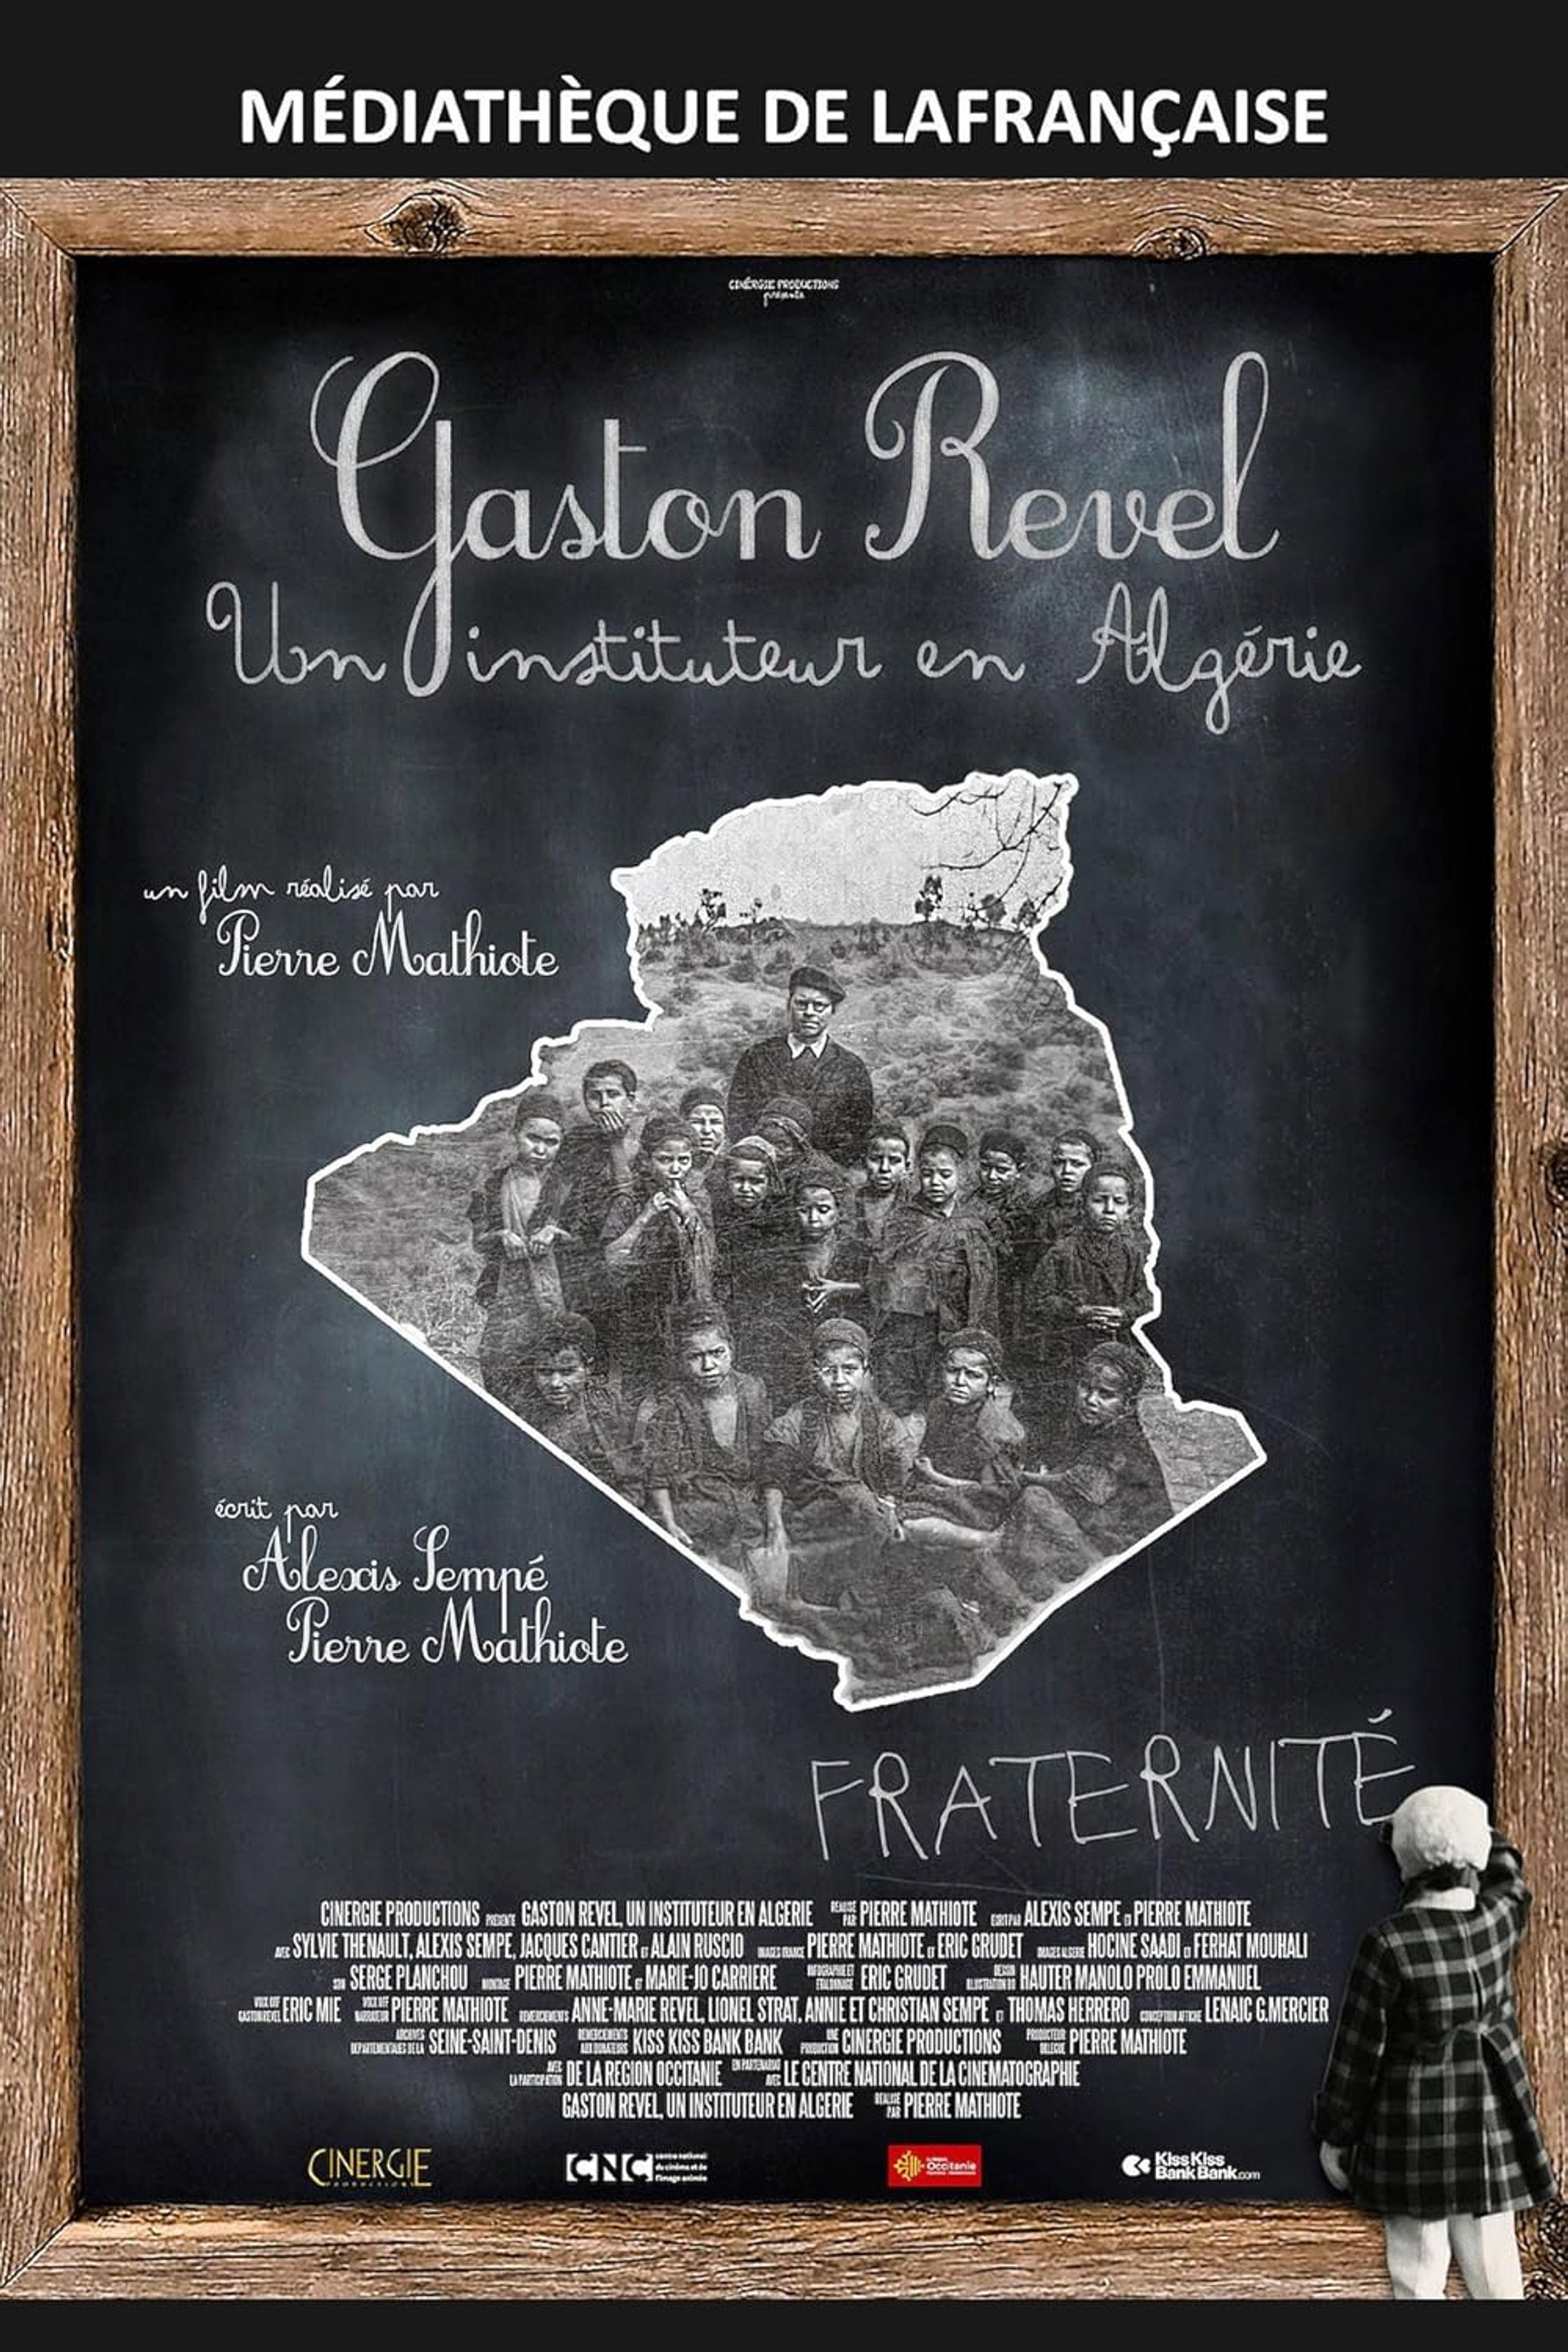 MÉDIATHÈQUE DE LAFRANÇAISE
CINÉRGIE PRODUCTIONS
présente
Gaston Revel
Un instituteur en Algérie
un film réalisé par
Pierre Mathiote
écrit par
Alexis Sempé
Pierre Mathiote
FRATERNITÉ
CINERGIE PRODUCTIONS PRESENTE GASTON REVEL, UN INSTITUTEUR EN ALGERIE REALISE PAR PIERRE MATHIOTE ECRIT PAR ALEXIS SEMPE ET PIERRE MATHIOTE
AVEC SYLVIE THENAULT, ALEXIS SEMPE, JACQUES CANTIER ET ALAIN RUSCIO IMAGES FRANCE PIERRE MATHIOTE ET ERIC GRUDET IMAGES ALGERIE HOCINE SAADI ET FERHAT MOUHALI
SON SERGE PLANCHOU MONTAGE PIERRE MATHIOTE ET MARIE-JO CARRIERE INFOGRAPHIE ET ETALONNAGE ERIC GRUDET DESSIN ILLUSTRATION BD HAUTER MANOLO PROLO EMMANUEL
VOIX OFF GASTON REVEL ERIC MIE VOIX OFF NARRATEUR PIERRE MATHIOTE REMERCIEMENTS ANNE-MARIE REVEL, LIONEL STRAT, ANNIE ET CHRISTIAN SEMPE ET THOMAS HERRERO CONCEPTION AFFICHE LENAIC G.MERCIER
ARCHIVES DEPARTEMENTALES DE LA SEINE-SAINT-DENIS REMERCIEMENTS AUX DONATEURS KISS KISS BANK BANK UNE PRODUCTION CINERGIE PRODUCTIONS PRODUCTEUR DELEGUE PIERRE MATHIOTE
AVEC LA PARTICIPATION DE LA REGION OCCITANIE EN PARTENARIAT AVEC LE CENTRE NATIONAL DE LA CINEMATOGRAPHIE
GASTON REVEL, UN INSTITUTEUR EN ALGERIE REALISE PAR PIERRE MATHIOTE
CINERGIE
PRODUCTIONS
CNC centre national
du cinéma et de
l'image animée
Occitanie
KissKiss
BankBank.com